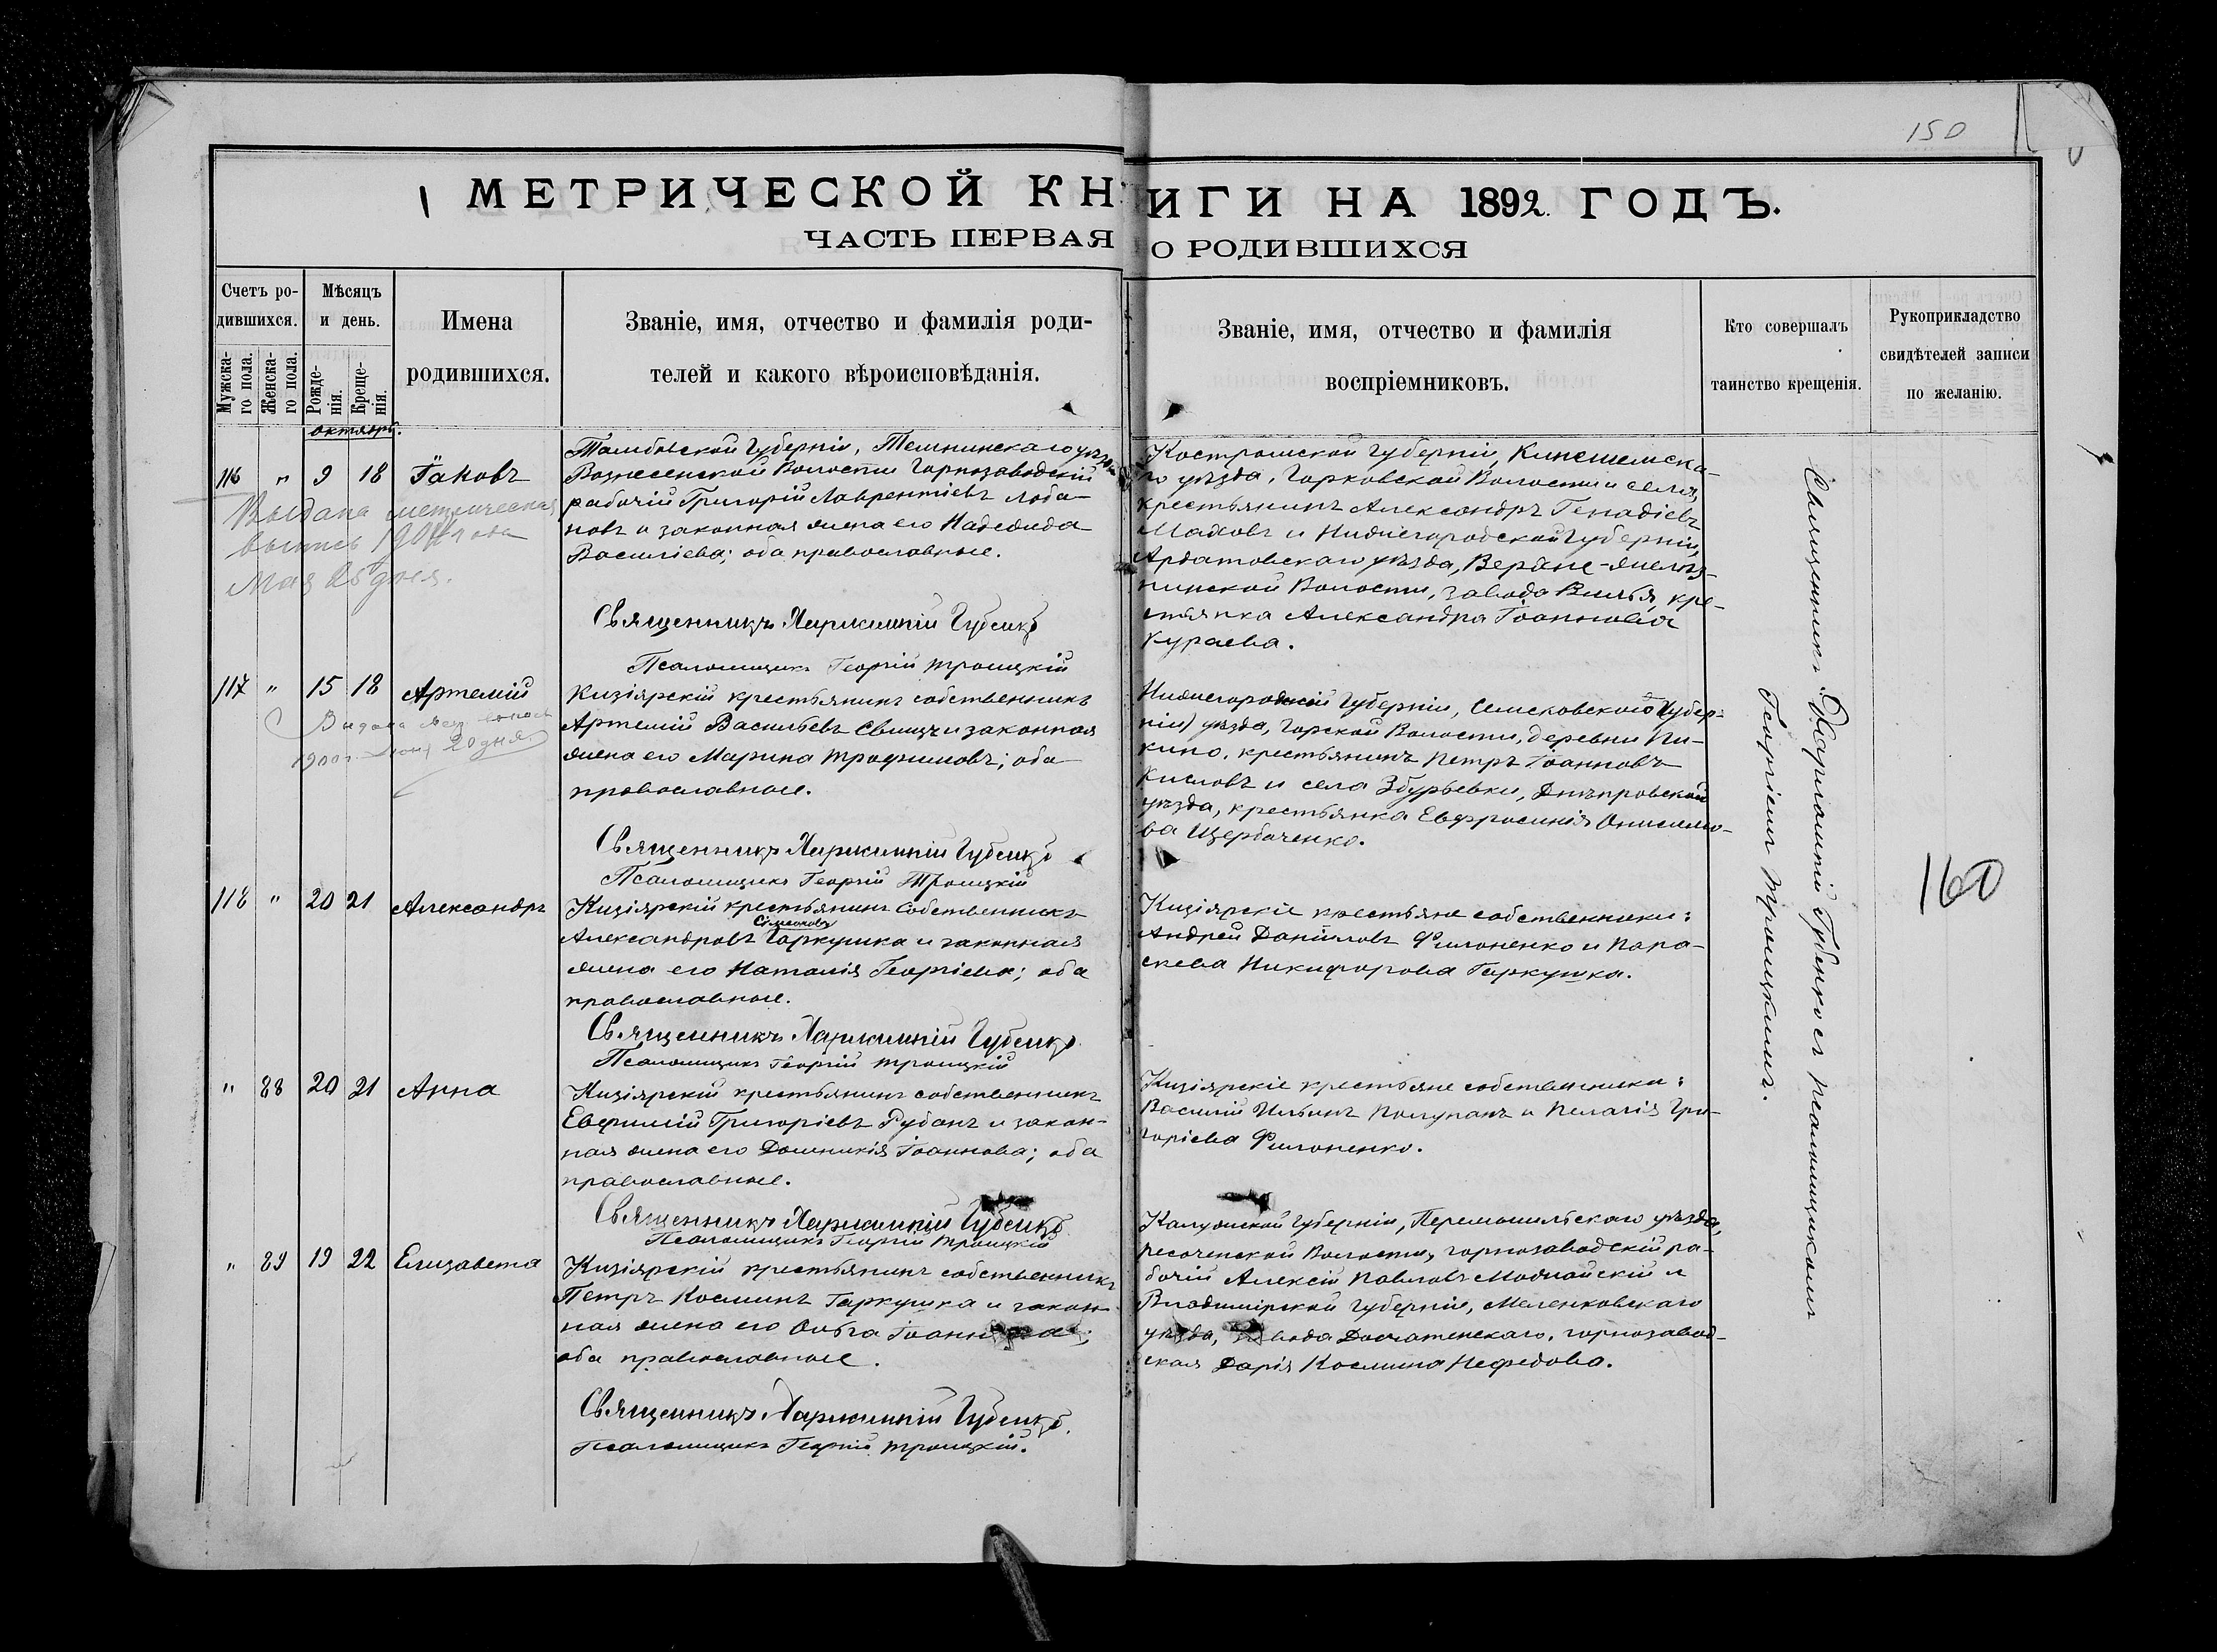 150
МЕТРИЧЕСКОЙ КНИГИ НА 1892 ГОДЪ.
ЧАСТЬ ПЕРВАЯ О РОДИВШИХСЯ
Счетъ ро-
дившихся.
Мужска-
го пола.
Женска-
го пола.
Мѣсяцъ
и день.
Рожде-
нія.
Креще-
нія.
Имена
родившихся.
Званіе, имя, отчество и фамилія роди-
телей и какого вѣроисповѣданія.
Званіе, имя, отчество и фамилія
воспріемниковъ.
Кто совершалъ
таинство крещенія.
Рукоприкладство
свидѣтелей записи
по желанію.
октябрь.
116 " 9 18 Іаковъ
Выдана метрическая
выпись
Мая 25 дня.
Тамбовской Губерніи, Темниковскаго уѣзда
Вознесенской Волости Горнозаводскій
рабочій Григорій Лаврентіевъ Лоба-
новъ и законная жена его Надежда
Василіева; оба православные.
Священникъ Харлампій Губенко
Псаломщикъ Георгій Троицкій
Костромской Губерніи, Кинешемска-
го уѣзда, Горковской Волости и села,
крестьянинъ Александръ Генадіевъ
Маховъ и Нижегородской Губерніи,
Ардатовскаго уѣзда, Верхне-
Волости, завода Вилья, кре-
стьянка Александра Іоаннова
Кураева.
117 " 15 18 Артемій
Выдана метр. выпись
1900 г. 20 дня
Кизіярскій крестьянинъ собственникъ
Артемій Васильевъ и законная
жена его Марина Трофимовъ; оба
православные.
Священникъ Харлампій Губенко
Псаломщикъ Георгій Троицкій
Нижегородской Губерніи, Семеновского (Губер-
ніи) уѣзда, Горской Волости, деревни Пи-
кино, крестьянинъ Петръ Іоанновъ
Кисловъ и села Збурьевки, Днѣпровскаго
уѣзда, крестьянка Евфросинія Онисимо-
ва Щербаченко.
118 " 20 21 Александръ
Кизіярскій крестьянинъ Собственникъ
Симеоновъ
Александровъ Гаркушка и законная
жена его Наталія Георгіева; оба
православные.
Священникъ Харлампій Губенко
Псаломщикъ Георгій Троицкій
Кизіярскіе крестьяне собственники:
Андрей Даніиловъ Филоненко и Пара-
скева Никифорова Гаркушка.
" 88 20 21 Анна
Кизіярскій крестьянинъ собственникъ
Евфимій Григоріевъ Рубанъ и закон-
ная жена его Домникія Іоаннова; оба
православные.
Священникъ Харлампій Губенко
Псаломщикъ Георгій Троицкій
Кизіярскіе крестьяне собственники:
Василій Ильинъ Полупанъ и Пелагія Гри-
горіева Филоненко.
" 89 19 22 Елизавета
Кизіярскій крестьянинъ собственникъ
Петръ Косминъ Гаркушка и закон-
ная жена его Ольга
оба православные.
Священникъ Харлампій Губенко.
Псаломщикъ Георгій Троицкій.
Калужской Губерніи, Перемышльскаго уѣзда,
Волости, горнозаводскій ра-
бочій Алексій Павловъ Можайскій и
Владимірской Губерніи, Меленковскаго
уѣзда, завода Досчатенскаго, горнозавод-
ская Дарія Космина Нефедова.
Священникъ Харлампій Губенко съ псаломщикомъ
Георгіемъ Троицкимъ.
160